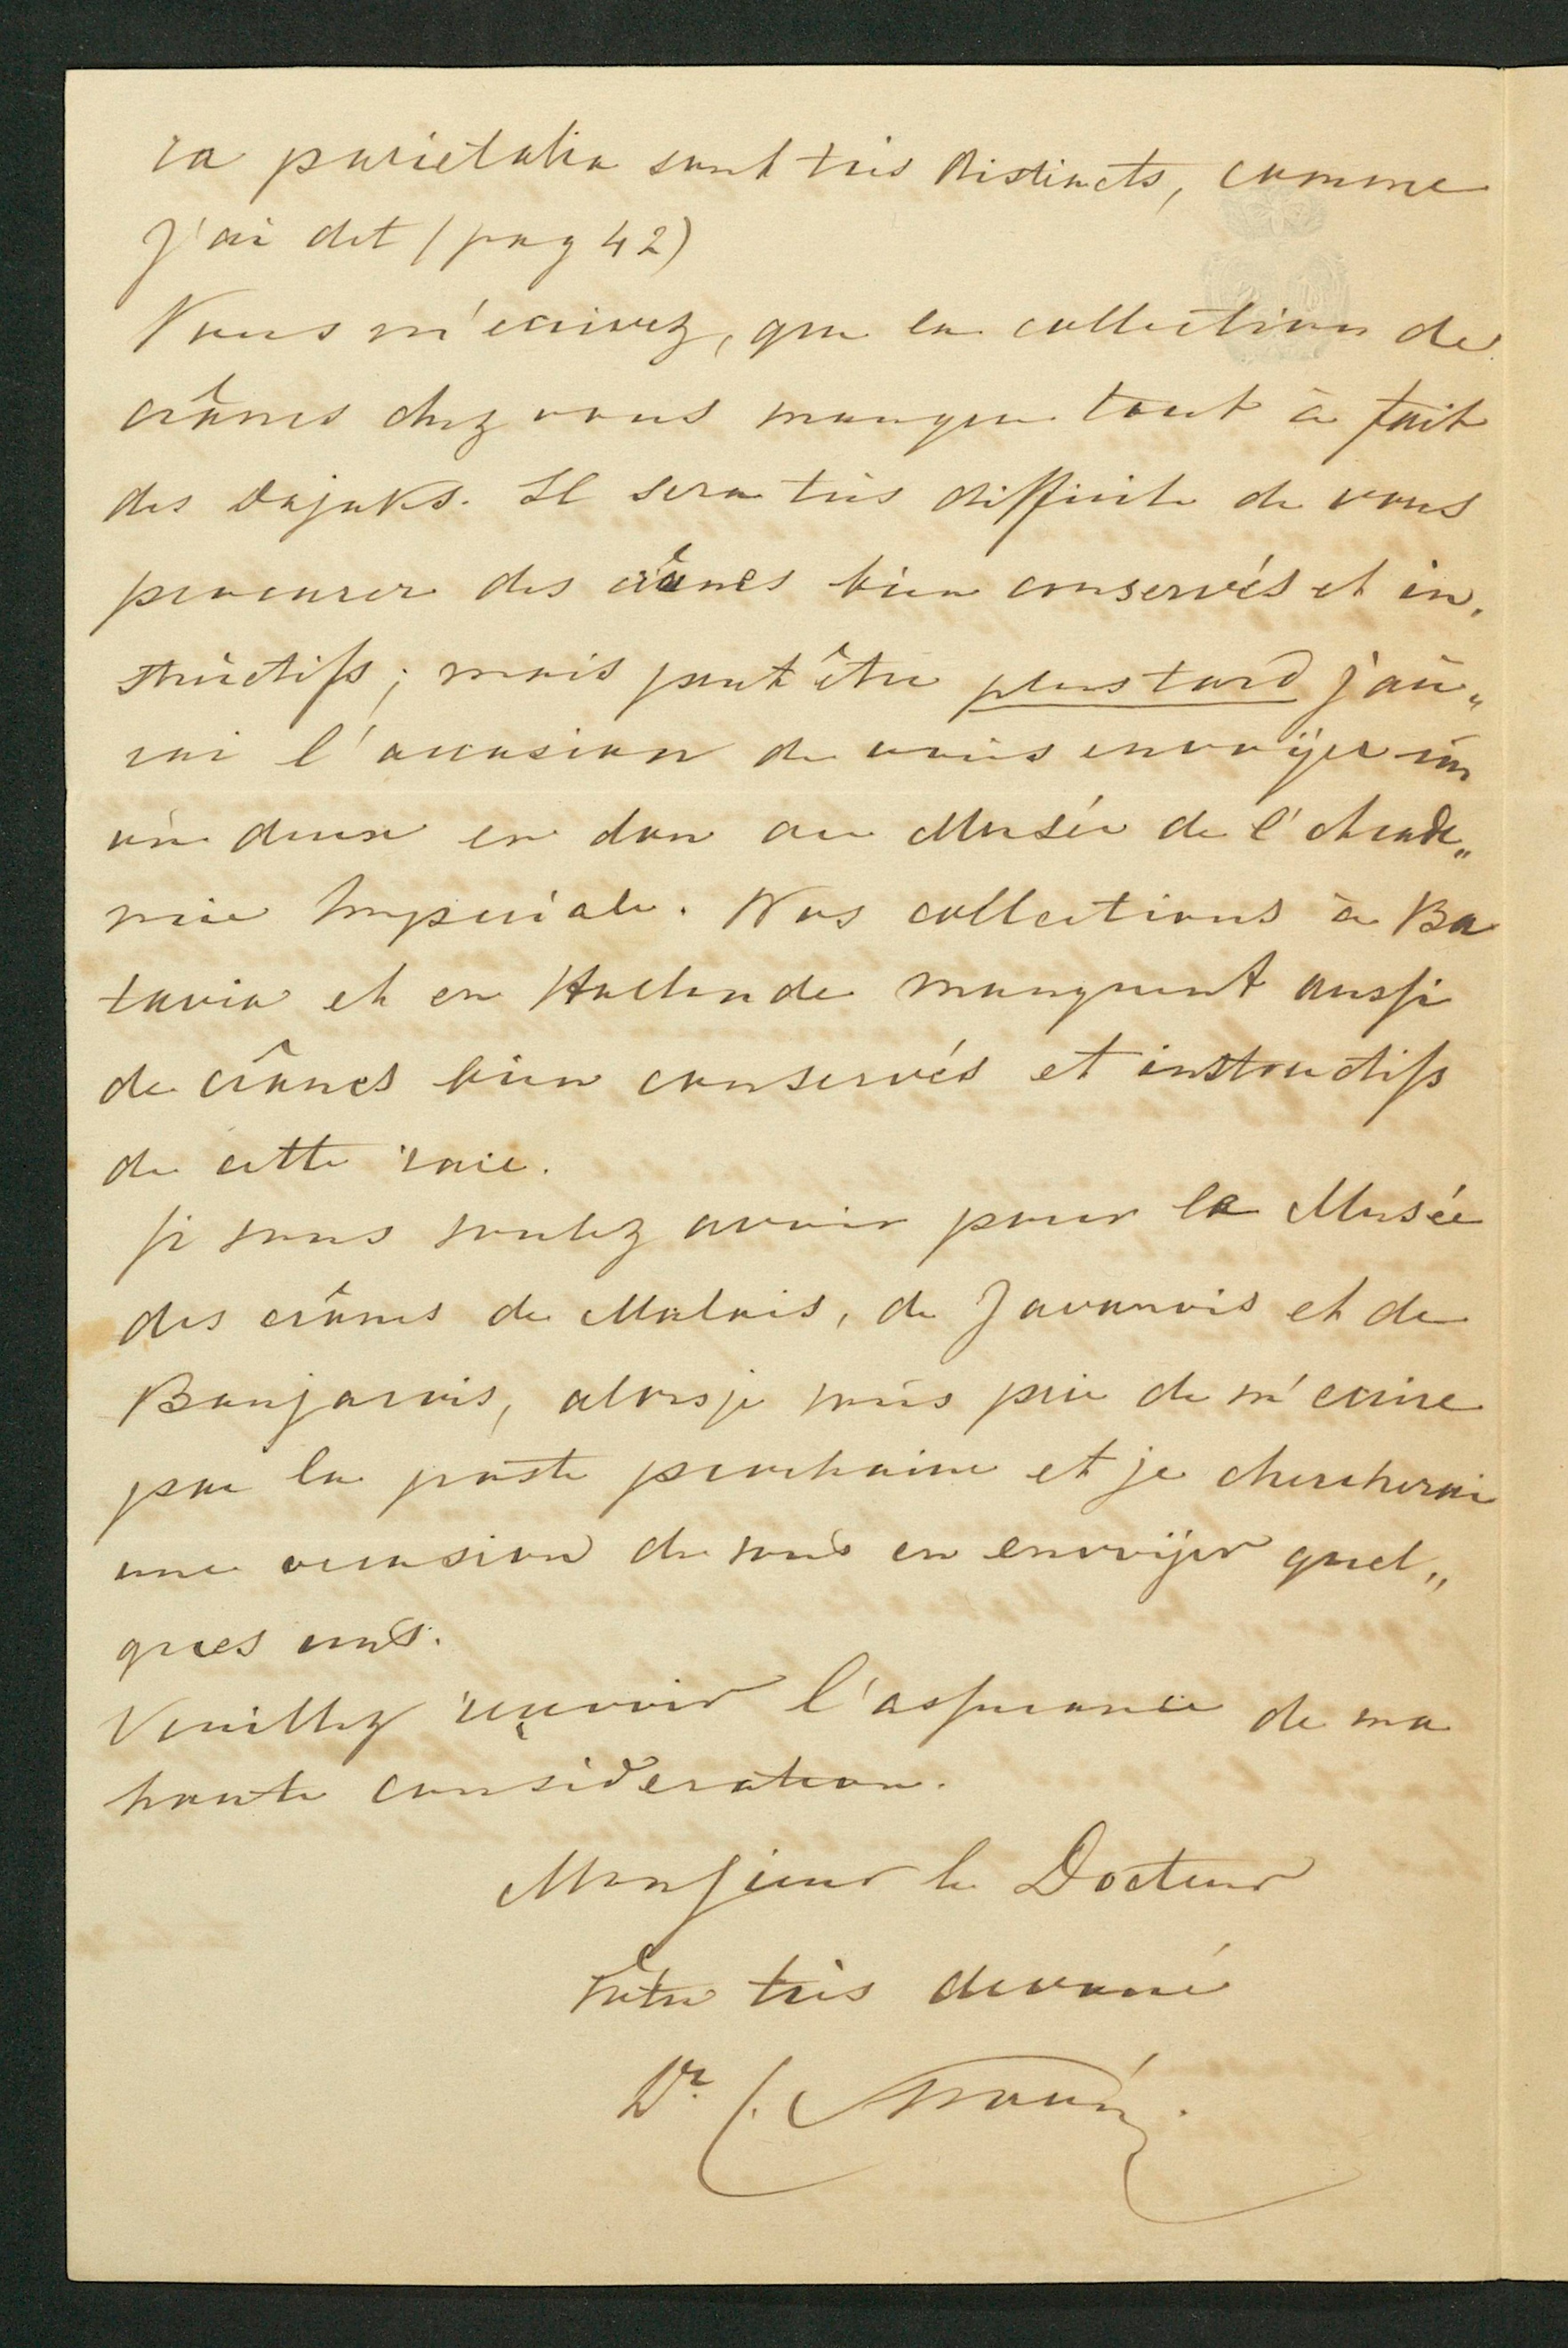 ra parietalia sont très distincts, comme
j'ai dit (pag 42)
Vous m'ecrivez, que la collection de
crânes chez vous manque tout à fait
des Dajaks. Il sera très difficile de vous
procurer des crânes bien conservés et in„
structifs; mais peut être plus tard j'au„
rai l'occasion de vous envoijer un
ou deux en don au Musée de l'Acade„
mie Imperiale. Nos collections à Ba
tavia et en Hollande manquent aussi
de crânes bien conservés et instructifs
de cette race.
Si vous voulez avoir pour le Musée
des crânes de Malais, de Javanois et de
Banjarois, alors je vous prie de m'ecrire
par la poste prochaine et je chercherai
une occasion de vous en envoijer quel„
ques uns.
Veuillez reçevoir l'assurance de ma
haute consideration.
Monsieur le Docteur
Vôtre très devoué
Dr. C.